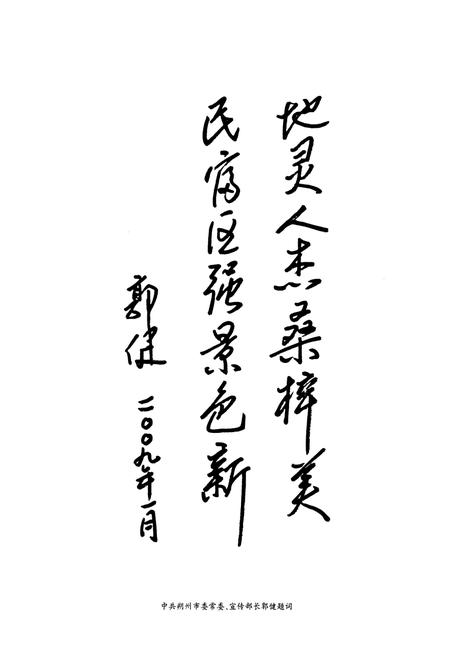 地灵人杰桑梓美
民富区强景色新
郭健 二〇〇九年一月
中共朔州市委常委、宣传部长郭健题词